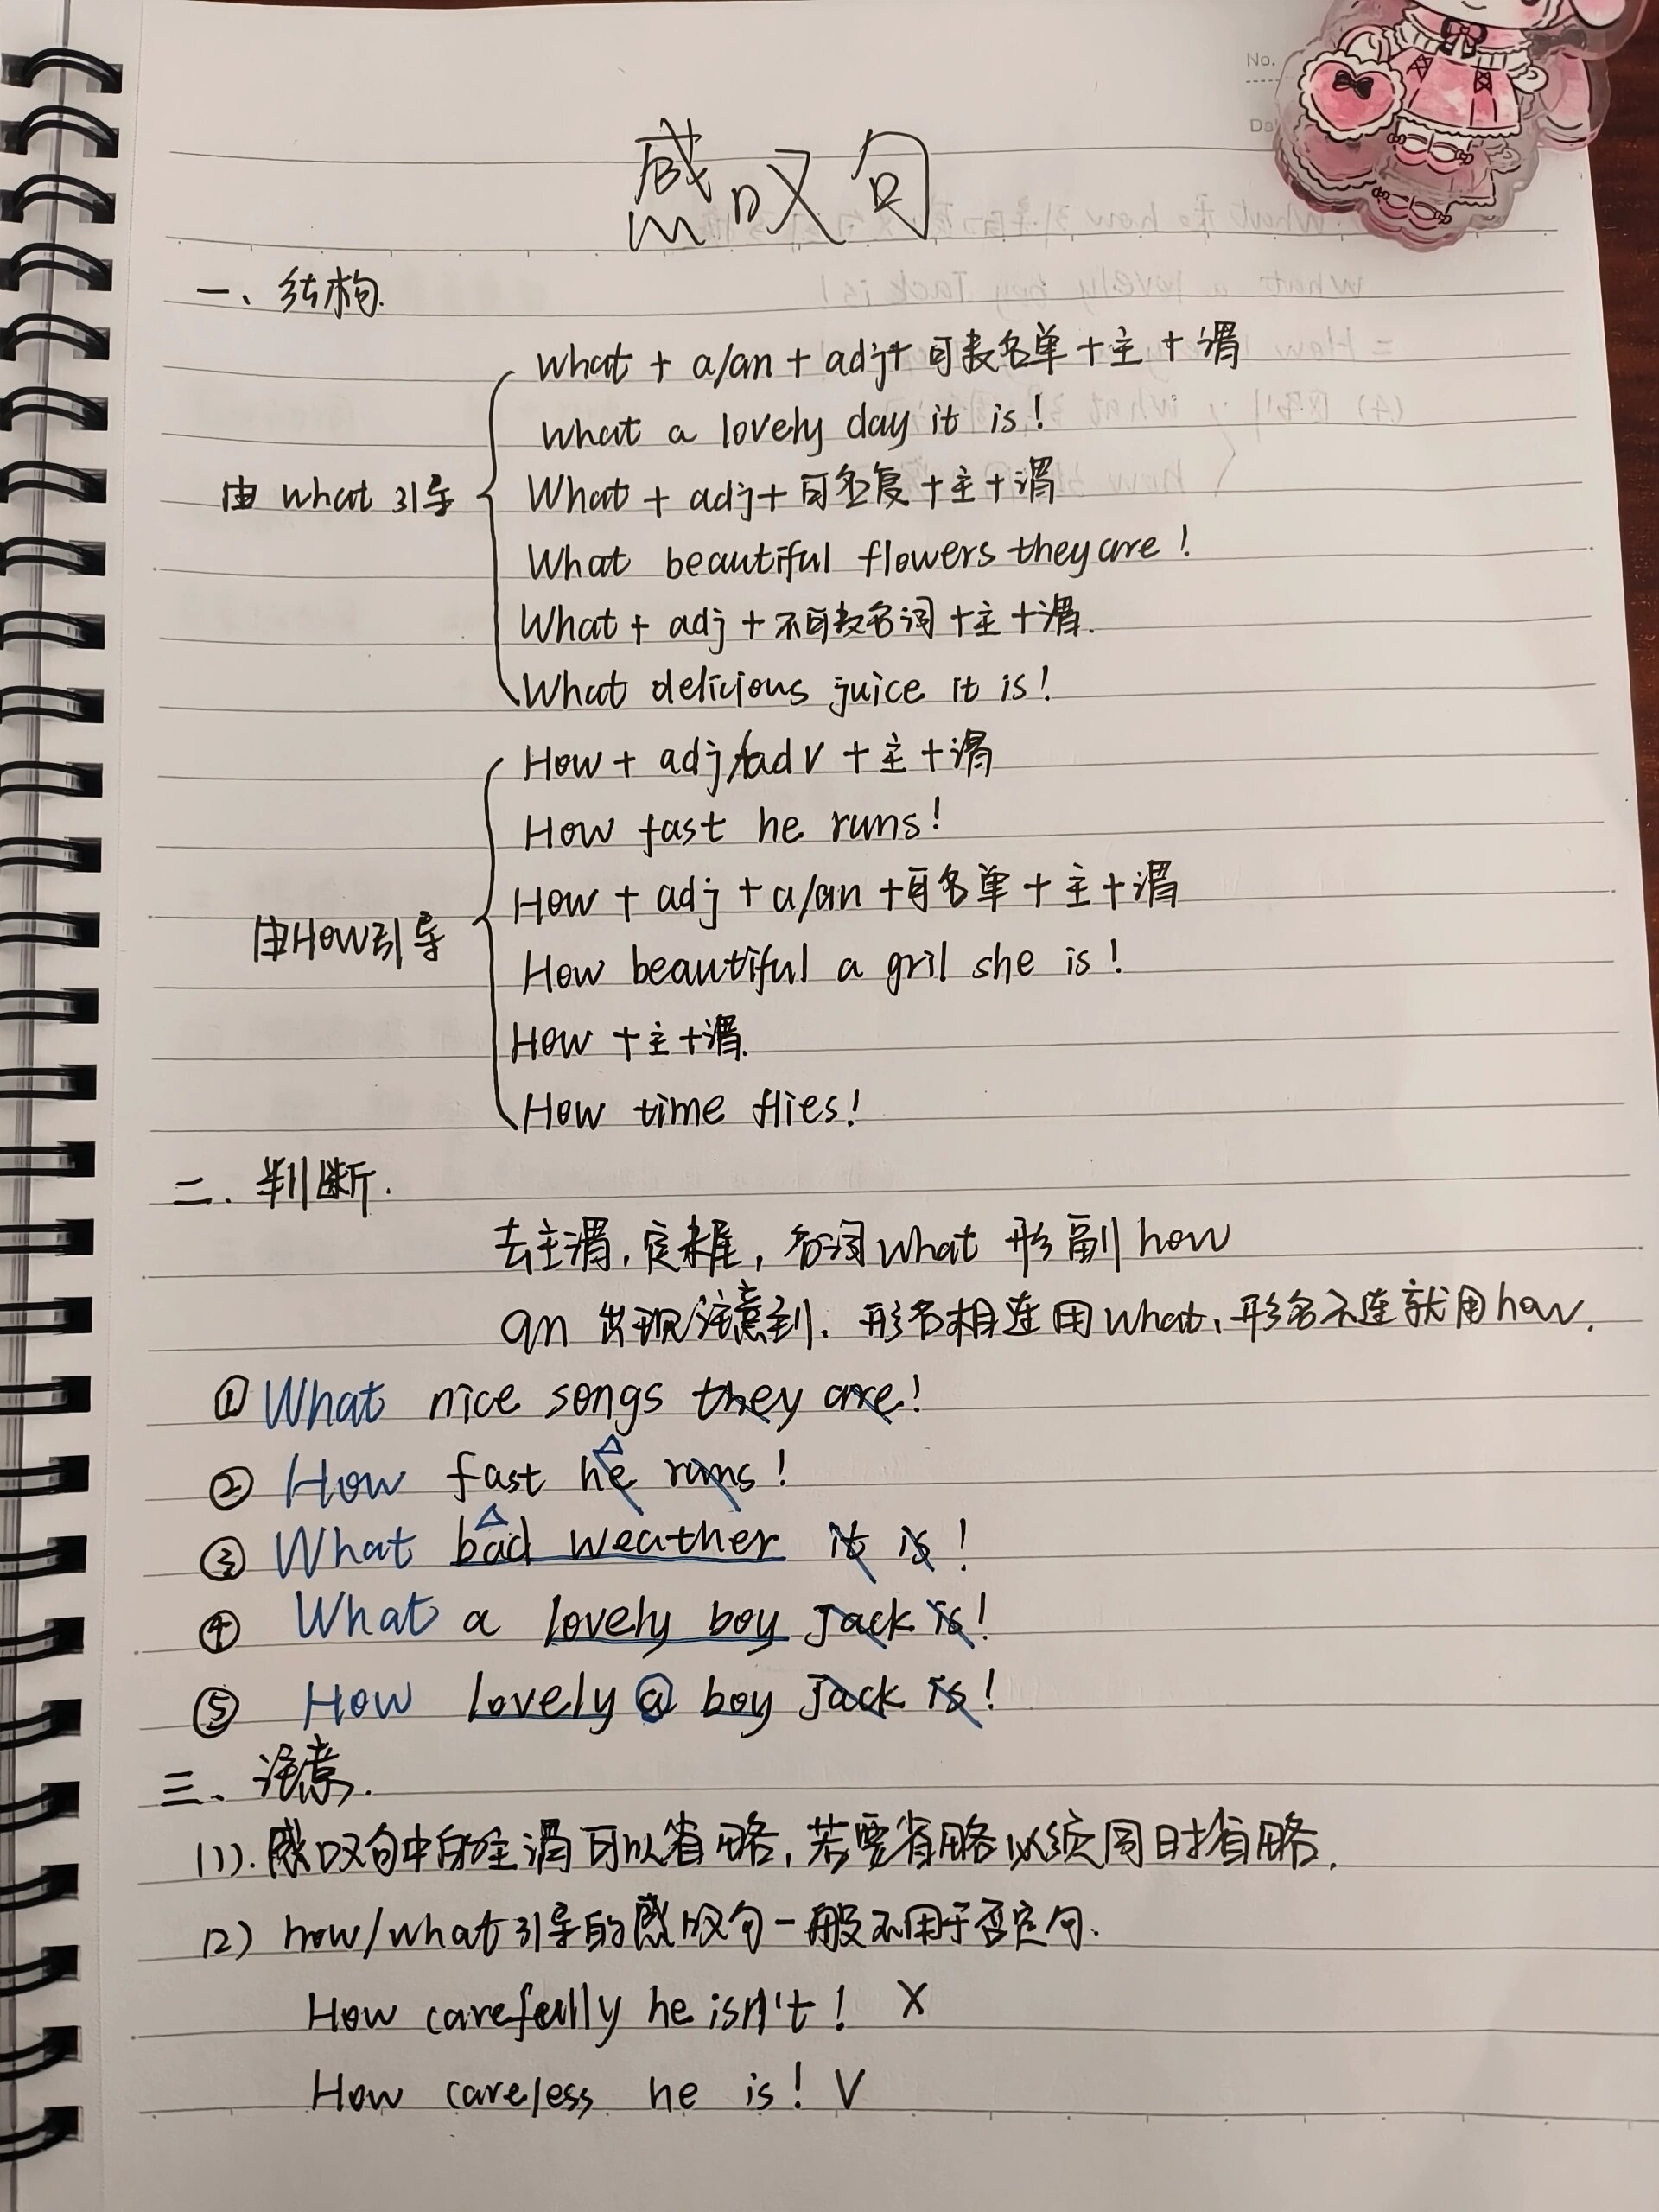 No.
感叹句
一、结构.
what + a/an + adj + 可数名单 + 主 + 谓
what a lovely day it is!
由 what 引导
What + adj + 可名复 + 主 + 谓
What beautiful flowers they are!
What + adj + 不可数名词 + 主 + 谓.
What delicious juice it is!
How + adj/adv + 主 + 谓
How fast he runs!
How + adj + a/an + 可名单 + 主 + 谓
由How引导
How beautiful a gril she is!
How + 主 + 谓.
How time flies!
二. 判断.
去主谓, 定末尾, 名词what 形副how
an 出现注意到. 形名相连用what, 形名不连就用how.
① What nice songs they are!
② How fast he runs!
③ What bad weather it is!
④ What a lovely boy Jack is!
⑤ How lovely a boy Jack is!
三、注意.
(1). 感叹句中的主谓可以省略, 若要省略必须同时省略.
(2) how/what引导的感叹句一般不用于否定句.
How carefully he isn't! X
How careless he is! V